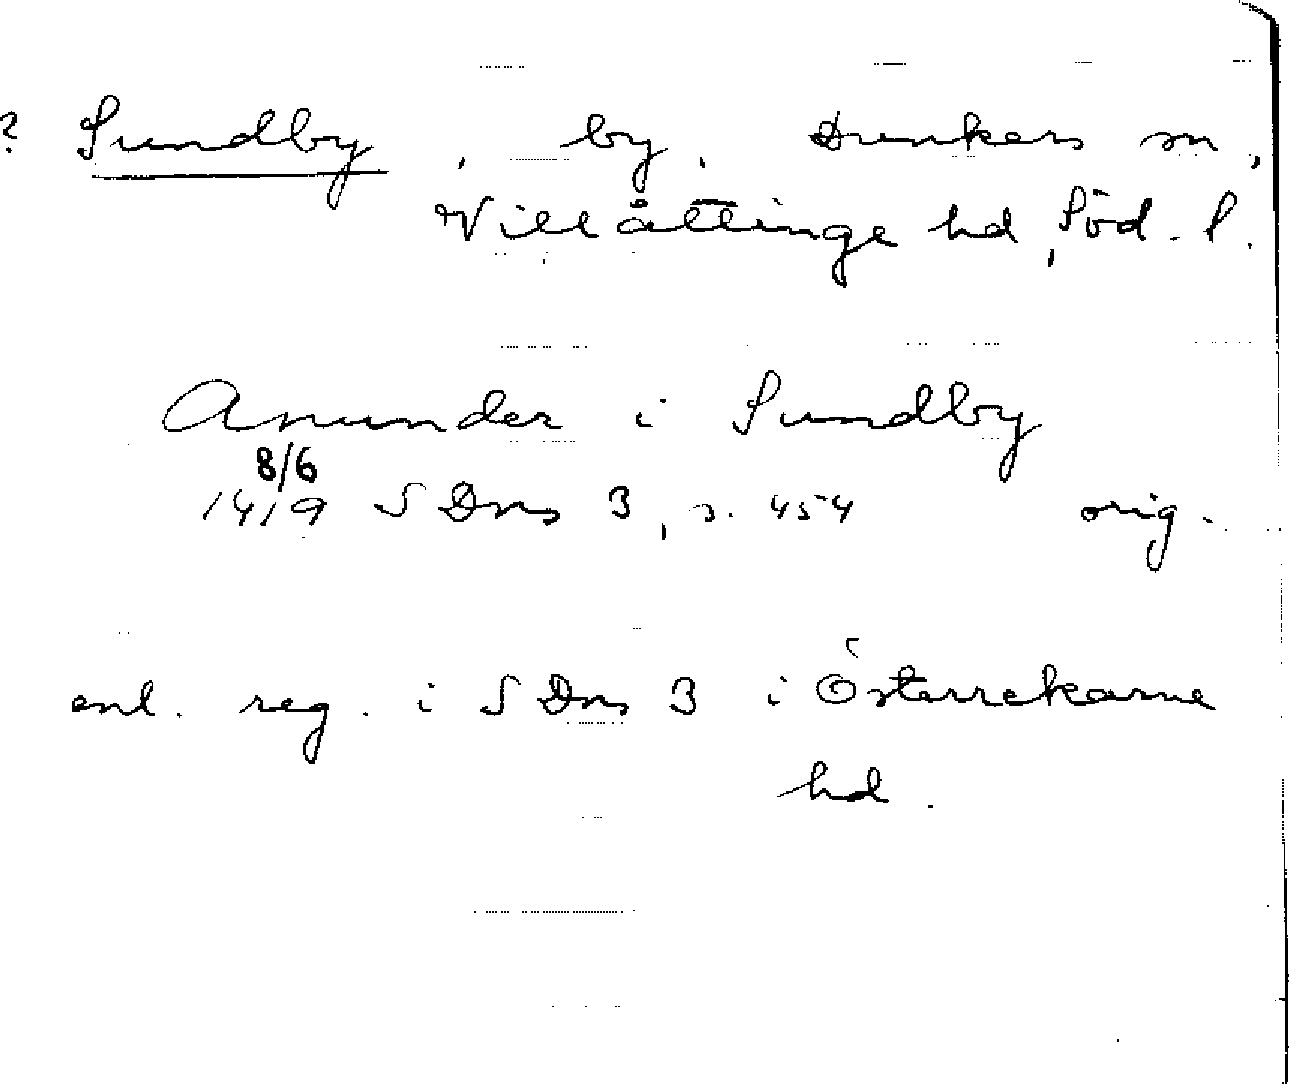 ? Sundby, by, Dunkers sn,
Villåttinge hd, Söd. l.
Anunder i Sundby
8/6
1419 SDns 3, s. 454 orig.
enl. reg. i SDns 3 i Österrekarne
hd.